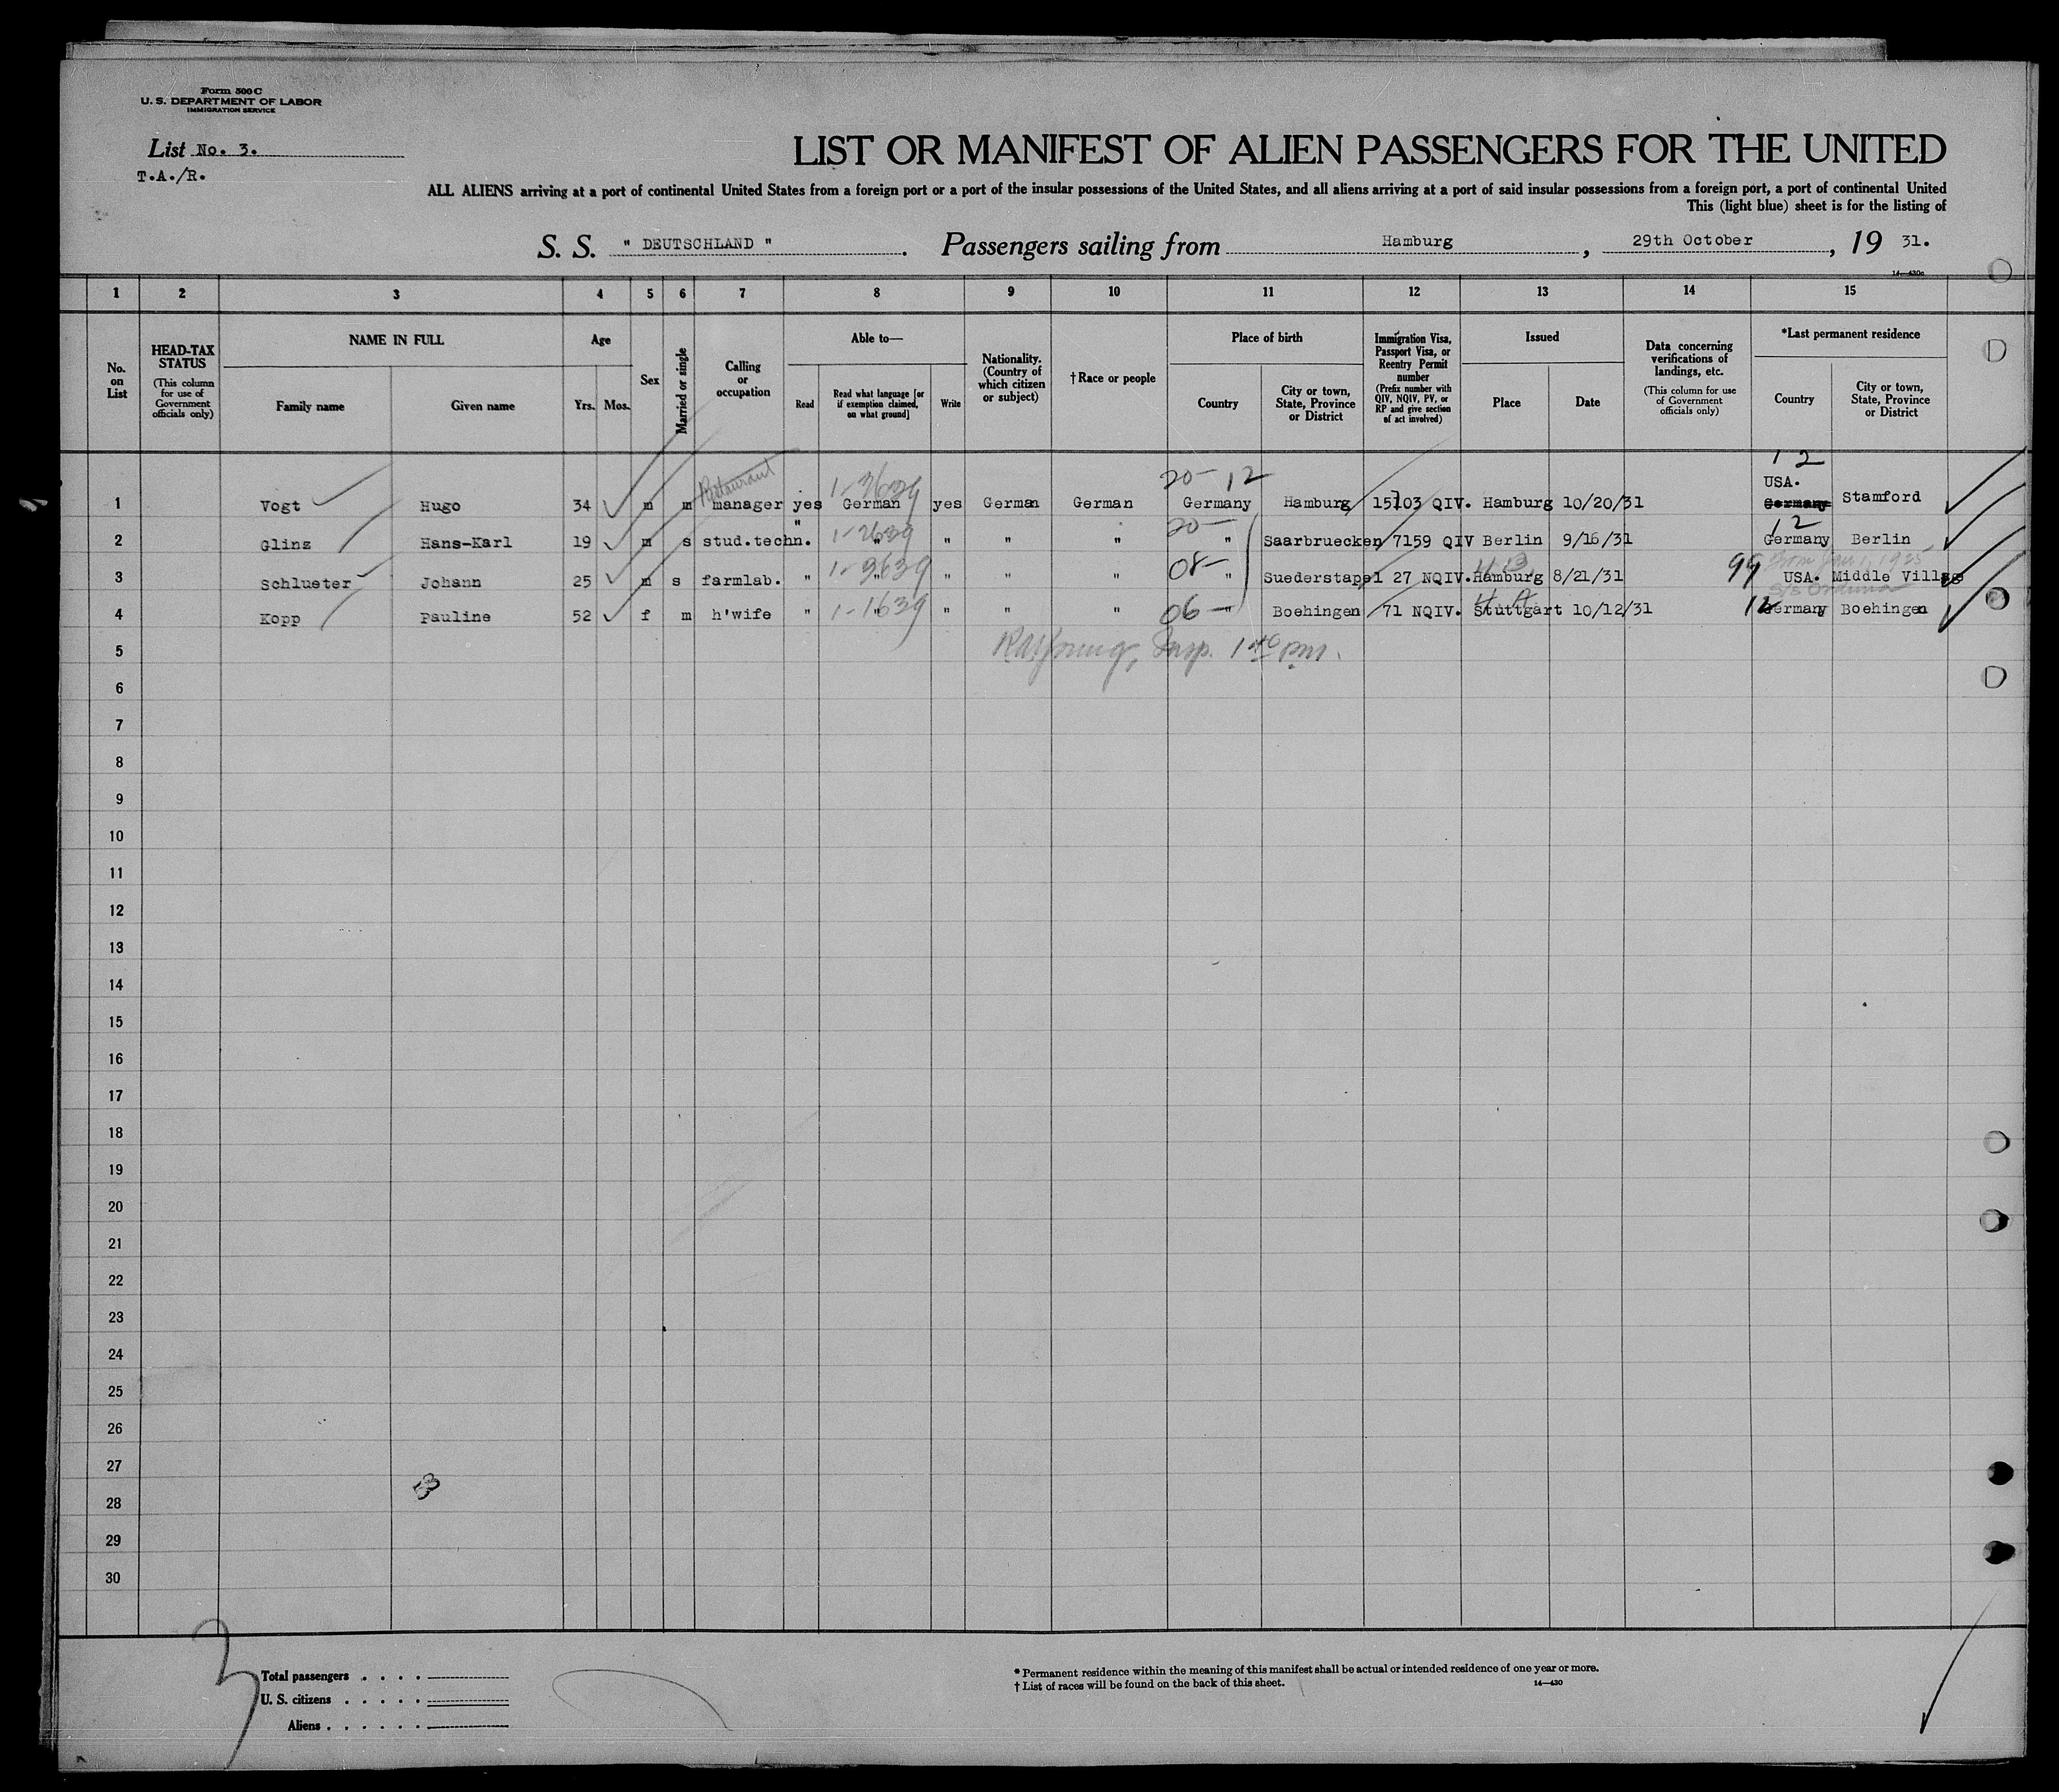 Form 500 C
U. S. DEPARTMENT OF LABOR
IMMIGRATION SERVICE
List No. 3.
T.A./R.
LIST OR MANIFEST OF ALIEN PASSENGERS FOR THE UNITED
ALL ALIENS arriving at a port of continental United States from a foreign port or a port of the insular possessions of the United States, and all aliens arriving at a port of said insular possessions from a foreign port, a port of continental United
This (light blue) sheet is for the listing of
S. S. " DEUTSCHLAND ". Passengers sailing from Hamburg, 29th October, 19 31.
14—430c
1 2 3 4 5 6 7 8 9 10 11 12 13 14 15
No. on List
HEAD-TAX STATUS (This column for use of Government officials only)
NAME IN FULL
Family name Given name
Age
Yrs. Mos.
Sex
Married or single
Calling or occupation
Able to—
Read
Read what language [or if exemption claimed, on what ground]
Write
Nationality. (Country of which citizen or subject)
†Race or people
Place of birth
Country
City or town, State, Province or District
Immigration Visa, Passport Visa, or Reentry Permit number (Prefix number with QIV, NQIV, PV, or RP and give section of act involved)
Issued
Place Date
Data concerning verifications of landings, etc. (This column for use of Government officials only)
*Last permanent residence
Country
City or town, State, Province or District
Restaurant 1-3639 20- 12 12
USA.
1 Vogt Hugo 34 m m manager yes German yes German German Germany Hamburg 15103 QIV. Hamburg 10/20/31 Germany Stamford
1-2639 20- 12
2 Glinz Hans-Karl 19 m s stud.techn. " " " " " " Saarbruecken 7159 QIV Berlin 9/16/31 Germany Berlin
1-3639 08- 99 from Jan 1, 1925
3 Schlueter Johann 25 m s farmlab. " " " " " " Suederstapel 27 NQIV. Hamburg 8/21/31 USA. Middle Village
1-1639 06- 12
4 Kopp Pauline 52 f m h'wife " " " " " " Boehingen 71 NQIV. Stuttgart 10/12/31 Germany Boehingen
5 Insp. 1 40 pm.
6
7
8
9
10
11
12
13
14
15
16
17
18
19
20
21
22
23
24
25
26
27
28
29
30
3
Total passengers . . . .
U. S. citizens . . . . .
Aliens . . . . . .
* Permanent residence within the meaning of this manifest shall be actual or intended residence of one year or more.
† List of races will be found on the back of this sheet.
14—430